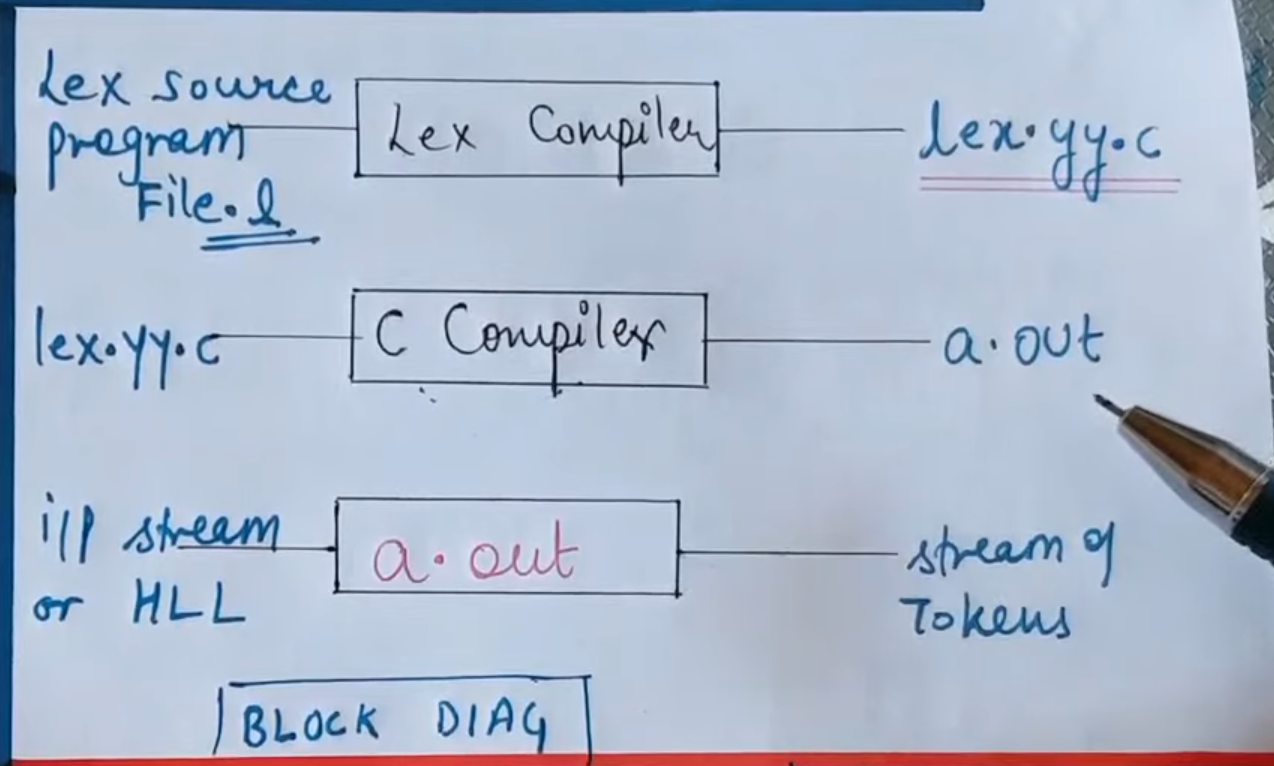 Lex source
program
File.l
Lex Compiler
lex.yy.c
lex.yy.c
C Compiler
a.out
i/p stream
or HLL
a.out
stream of
Tokens
BLOCK DIAG